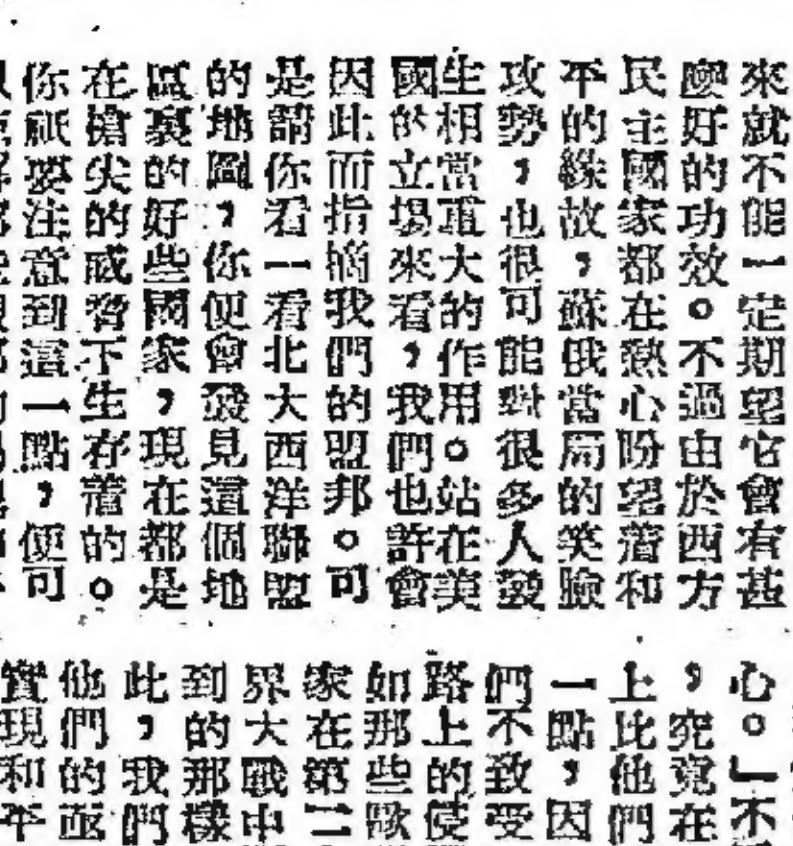 來就不能一定期望它會有甚
麼好的功效。不過由於西方
民主國家都在熱心盼望着和
平的緣故，蘇俄當局的笑臉
攻勢，也很可能對很多人發
生相當重大的作用。站在美
國的立場來看，我們也許會
因此而指摘我們的盟邦。可
是請你看一看北大西洋聯盟
的地圖，你便會發見這個地
區裏的好些國家，現在都是
在槍尖的威脅下生存着的。
你祇要注意到這一點，便可
心。」不
，究竟在
上比他們
一點，因
們不致受
路上的使
如那些歐
家在第二
界大戰中
到的那樣
此，我們
他們的面
實現和平